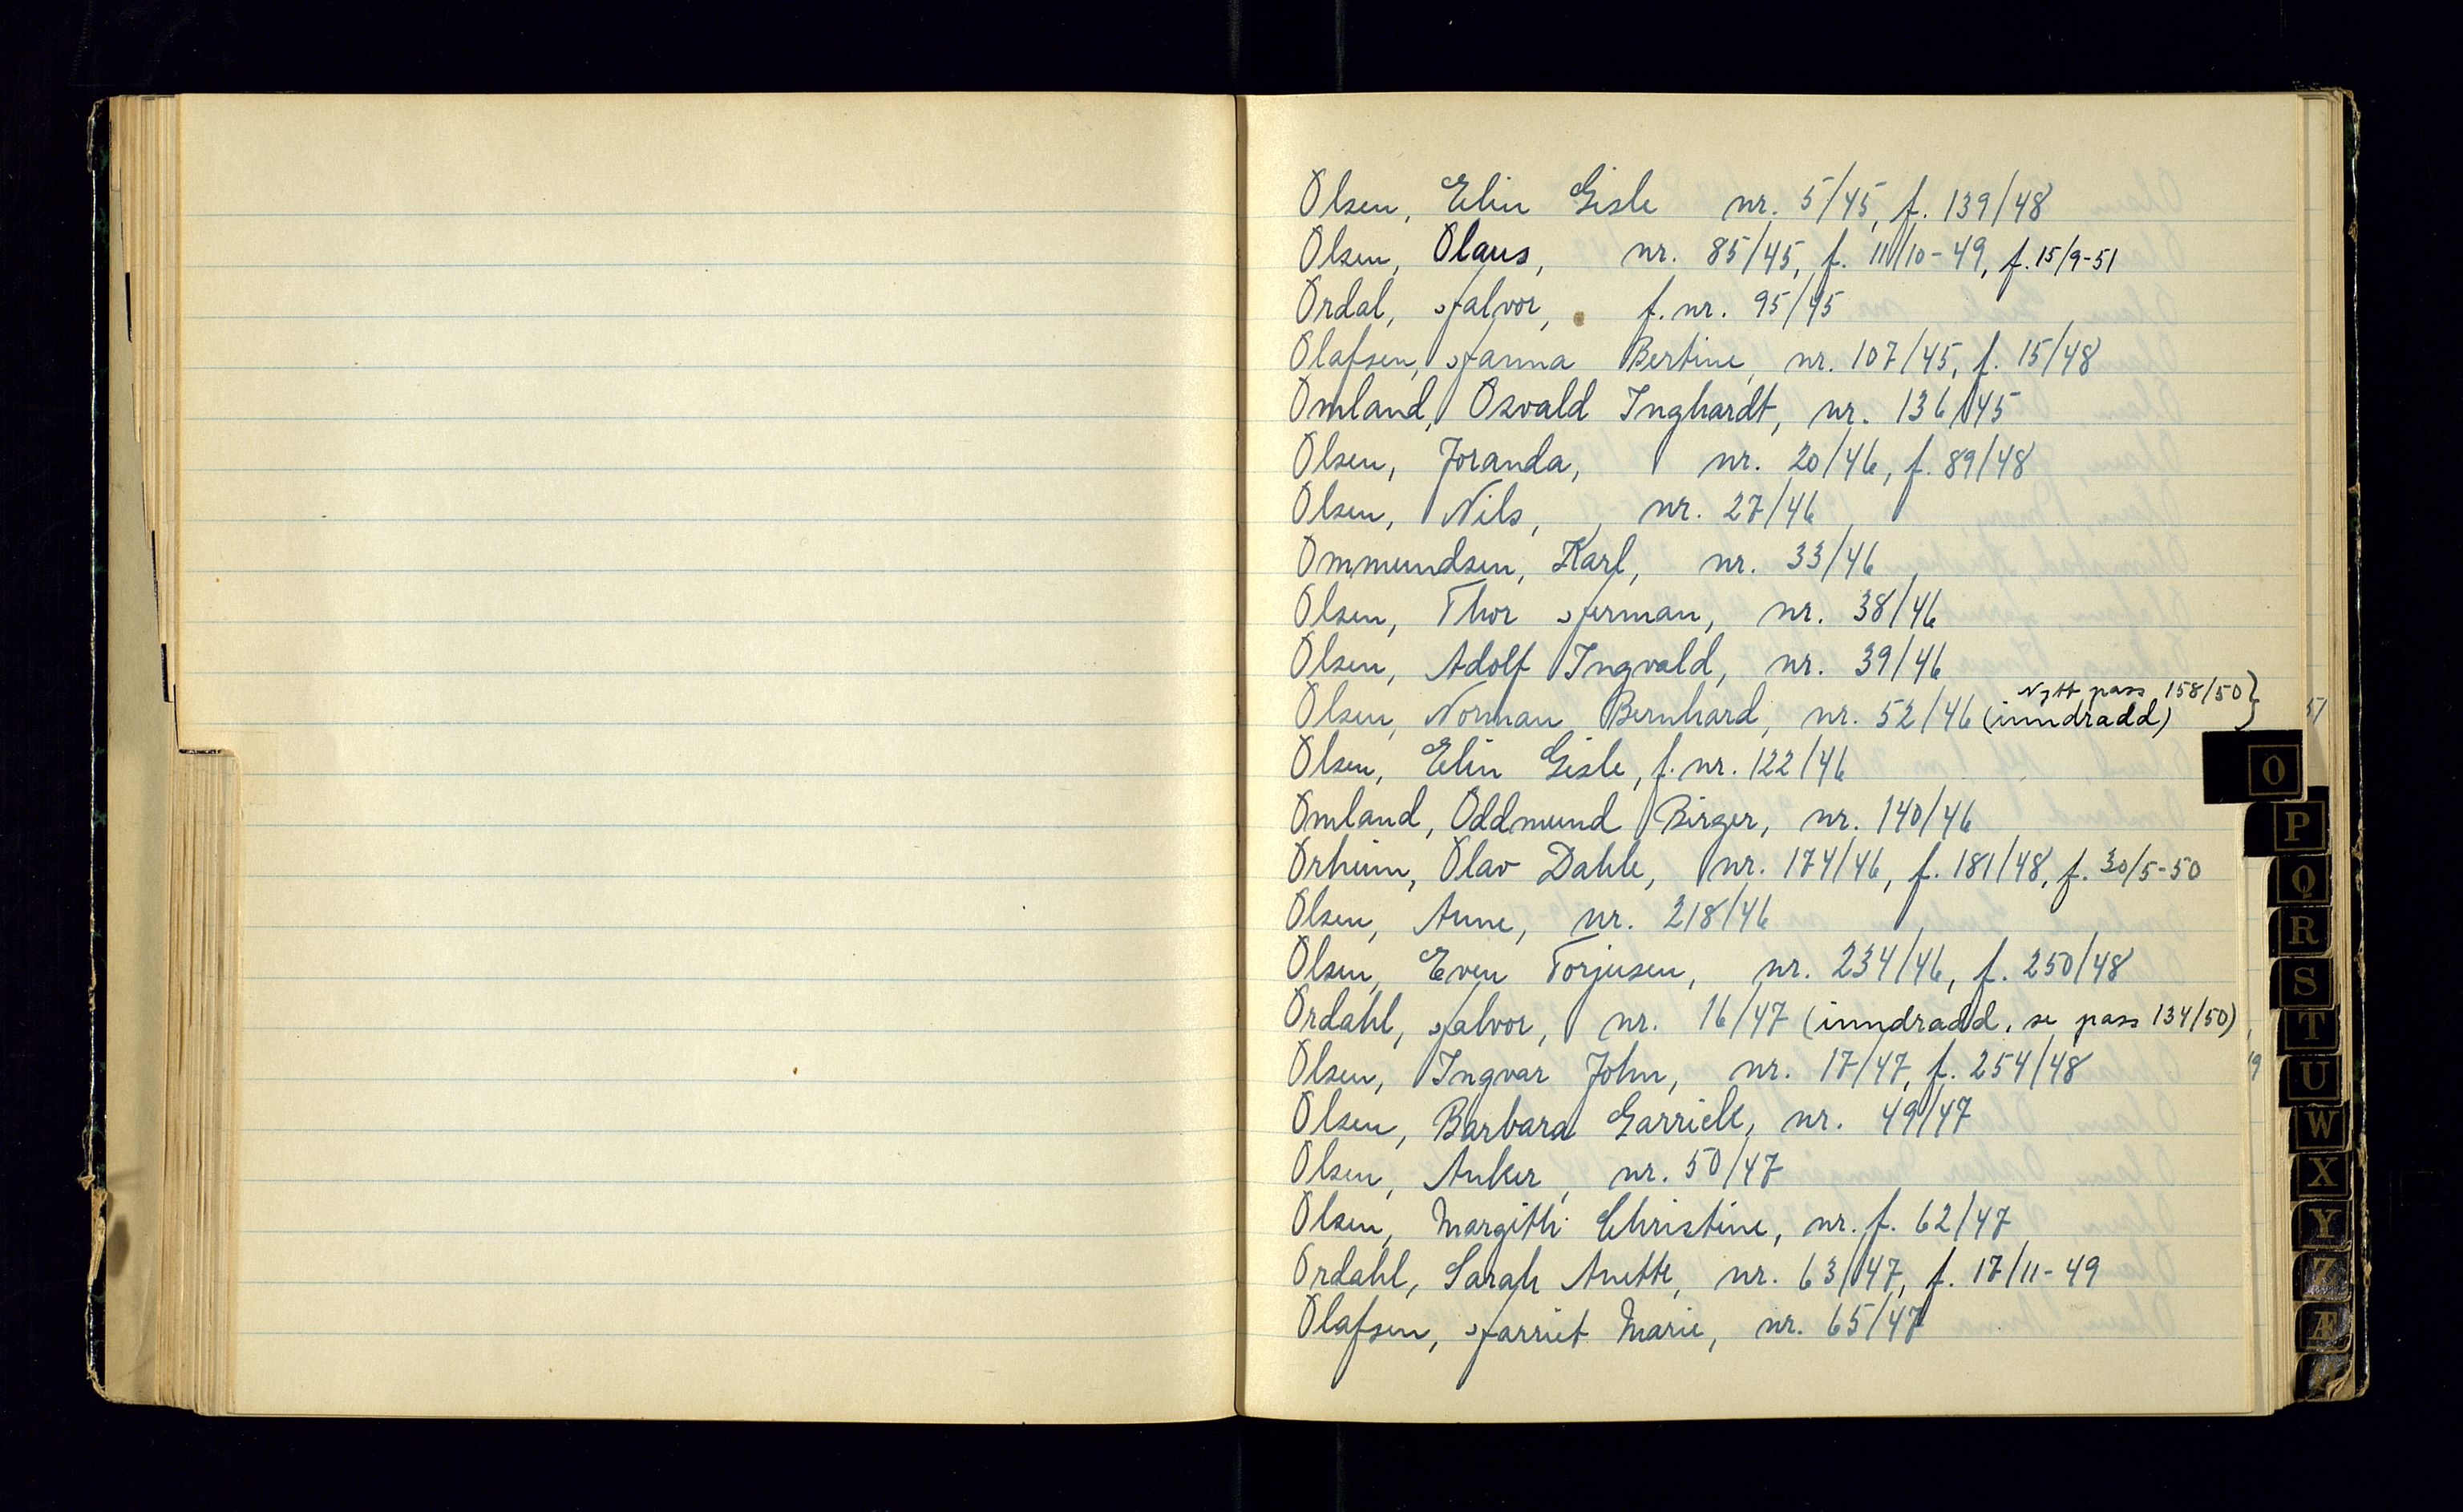 Olsen, Elin Gisle nr. 5/45, f. 139/48
Olsen, Olaus, nr. 85/45, f. 11/10-49, f. 15/9-51
Ordal, Halvor, f. nr. 95/45
Olafsen, Hanna Bertine, nr. 107/45, f. 15/48
Omland, Osvald Inghardt, nr. 136/45
Olsen, Joranda, nr. 20/46, f. 89/48
Olsen, Nils, nr. 27/46
Ommundsen, Karl, nr. 33/46
Olsen, Thor Herman, nr. 38/46
Olsen, Adolf Ingvald, nr. 39/46
Nytt pass 158/50}
Olsen, Norman Bernhard, nr. 52/46 (inndradd)
Olsen, Elin Gisle, f. nr. 122/46
Omland, Oddmund Birger, nr. 140/46
Orheim, Olav Dahle, nr. 174/46, f. 181/48, f. 30/5-50
Olsen, Anne, nr. 218/46
Olsen, Even Torjusen, nr. 234/46, f. 250/48
Ordahl, Halvor, nr. 16/47 (inndradd, se pass 134/50)
Olsen, Ingvar John, nr. 17/47, f. 254/48
Olsen, Barbara Garrick, nr. 49/47
Olsen, Anker, nr. 50/47
Olsen, Margith Christine, nr. f. 62/47
Ordahl, Sarah Anette, nr. 63/47, f. 17/11-49
Olafsen, Harriet Marie, nr. 65/47
O
P
Q
R
S
T
U
W
X
Y
Z
Æ